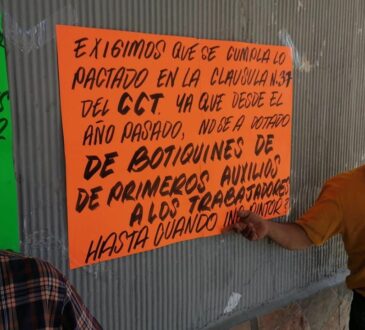 EXIGIMOS QUE SE CUMPLA LO
PACTADO EN LA CLAUSULA N.37
DEL CCT. YA QUE DESDE EL
AÑO PASADO, NO SE A DOTADO
DE BOTIQUINES DE
DE PRIMEROS AUXILIOS
A LOS TRABAJADORES
HASTA CUANDO ING. PINTOR?